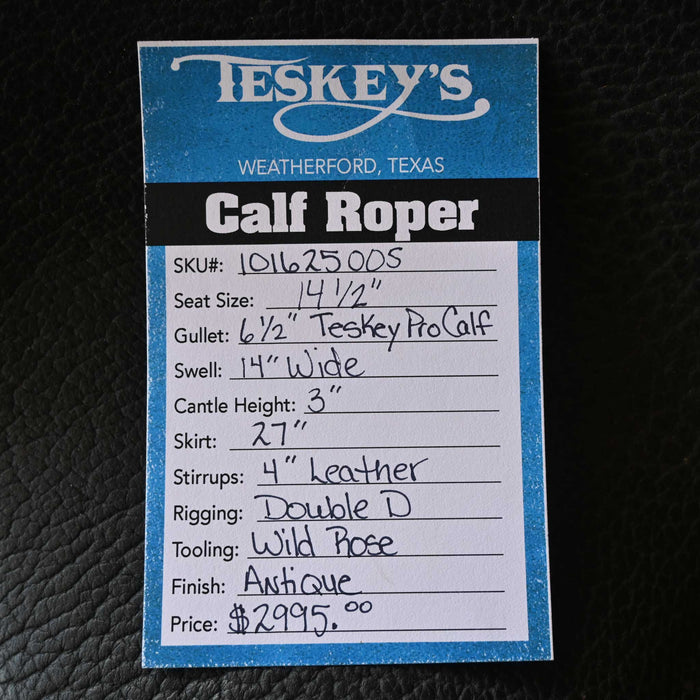 TESKEY'S
WEATHERFORD, TEXAS
Calf Roper
SKU#: 10162500S
Seat Size: 14 1/2"
Gullet: 6 1/2" Teskey Pro Calf
Swell: 14" Wide
Cantle Height: 3"
Skirt: 27"
Stirrups: 4" Leather
Rigging: Double D
Tooling: Wild Rose
Finish: Antique
Price: $2995.00